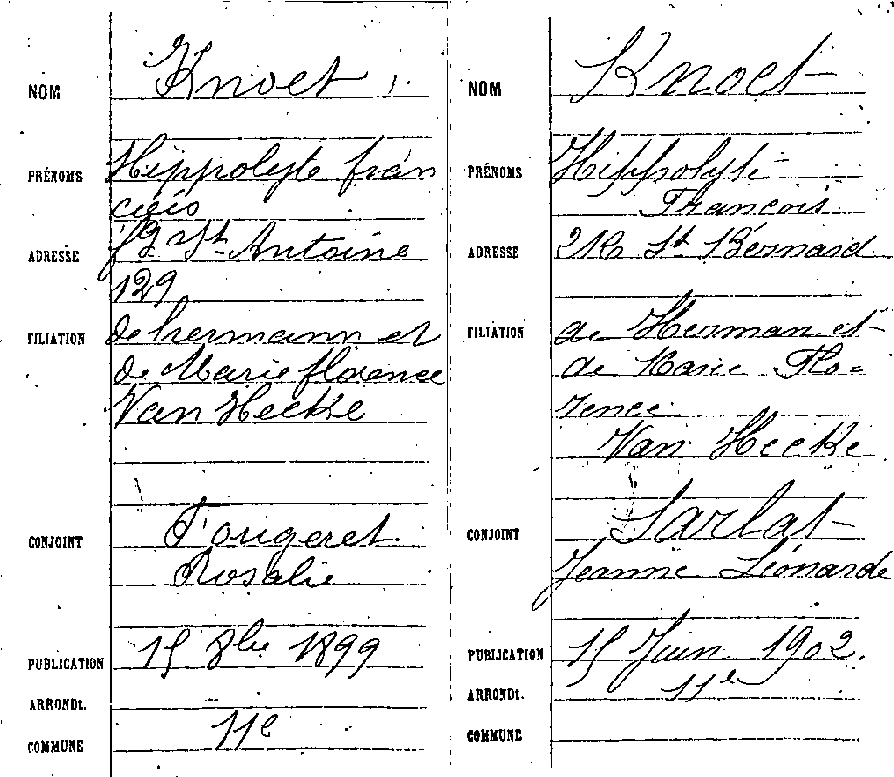 NOM Knoet
PRÉNOMS Hippolyte fran
çois
ADRESSE fg St Antoine
129
FILIATION de hermann et
de Marie florence
Van Hecke
CONJOINT Fougeret
Rosalie
PUBLICATION 15 8bre 1899
ARRONDt.
11e
COMMUNE
NOM Knoet
PRÉNOMS Hippolyte
François
ADRESSE 2 R St Bernard
FILIATION de Herman et
de Marie Flo-
rence
Van Hecke
CONJOINT Sarlat
Jeanne Léonarde
PUBLICATION 15 Juin 1902.
ARRONDt. 11e
COMMUNE